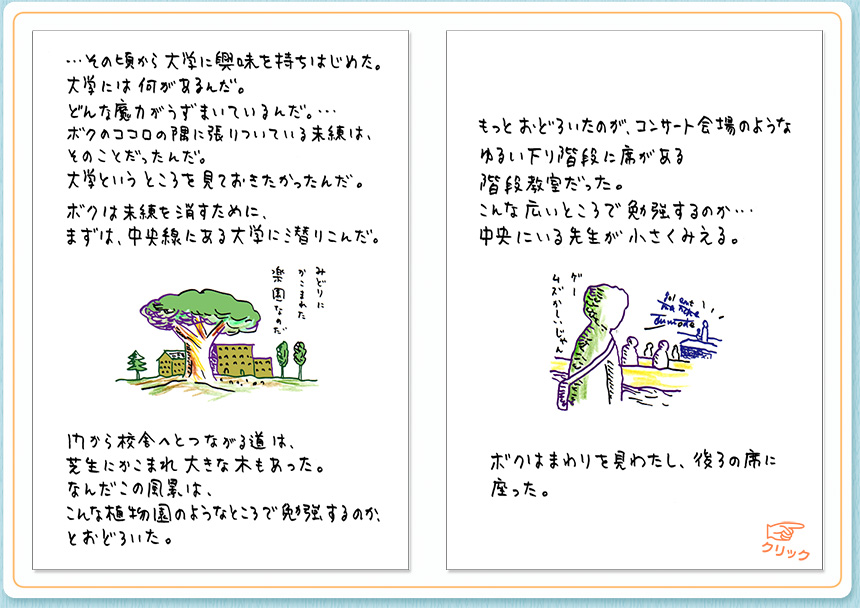 …その頃から大学に興味を持ちはじめた。
大学には何があるんだ。
どんな魔力がうずまいているんだ。…
ボクのココロの隅に張りついている未練は、
そのことだったんだ。
大学というところを見ておきたかったんだ。
ボクは未練を消すために、
まずは、中央線にある大学に潜りこんだ。
みどりに
かこまれた
楽園なのだ
門から校舎へとつながる道は、
芝生にかこまれ大きな木もあった。
なんだこの風景は、
こんな植物園のようなところで勉強するのか、
とおどろいた。
もっとおどろいたのが、コンサート会場のような
ゆるい下り階段に席がある
階段教室だった。
こんな広いところで勉強するのか…
中央にいる先生が小さくみえる。
ゲー
ムズかしいじゃん
ボクはまわりを見わたし、後ろの席に
座った。
クリック